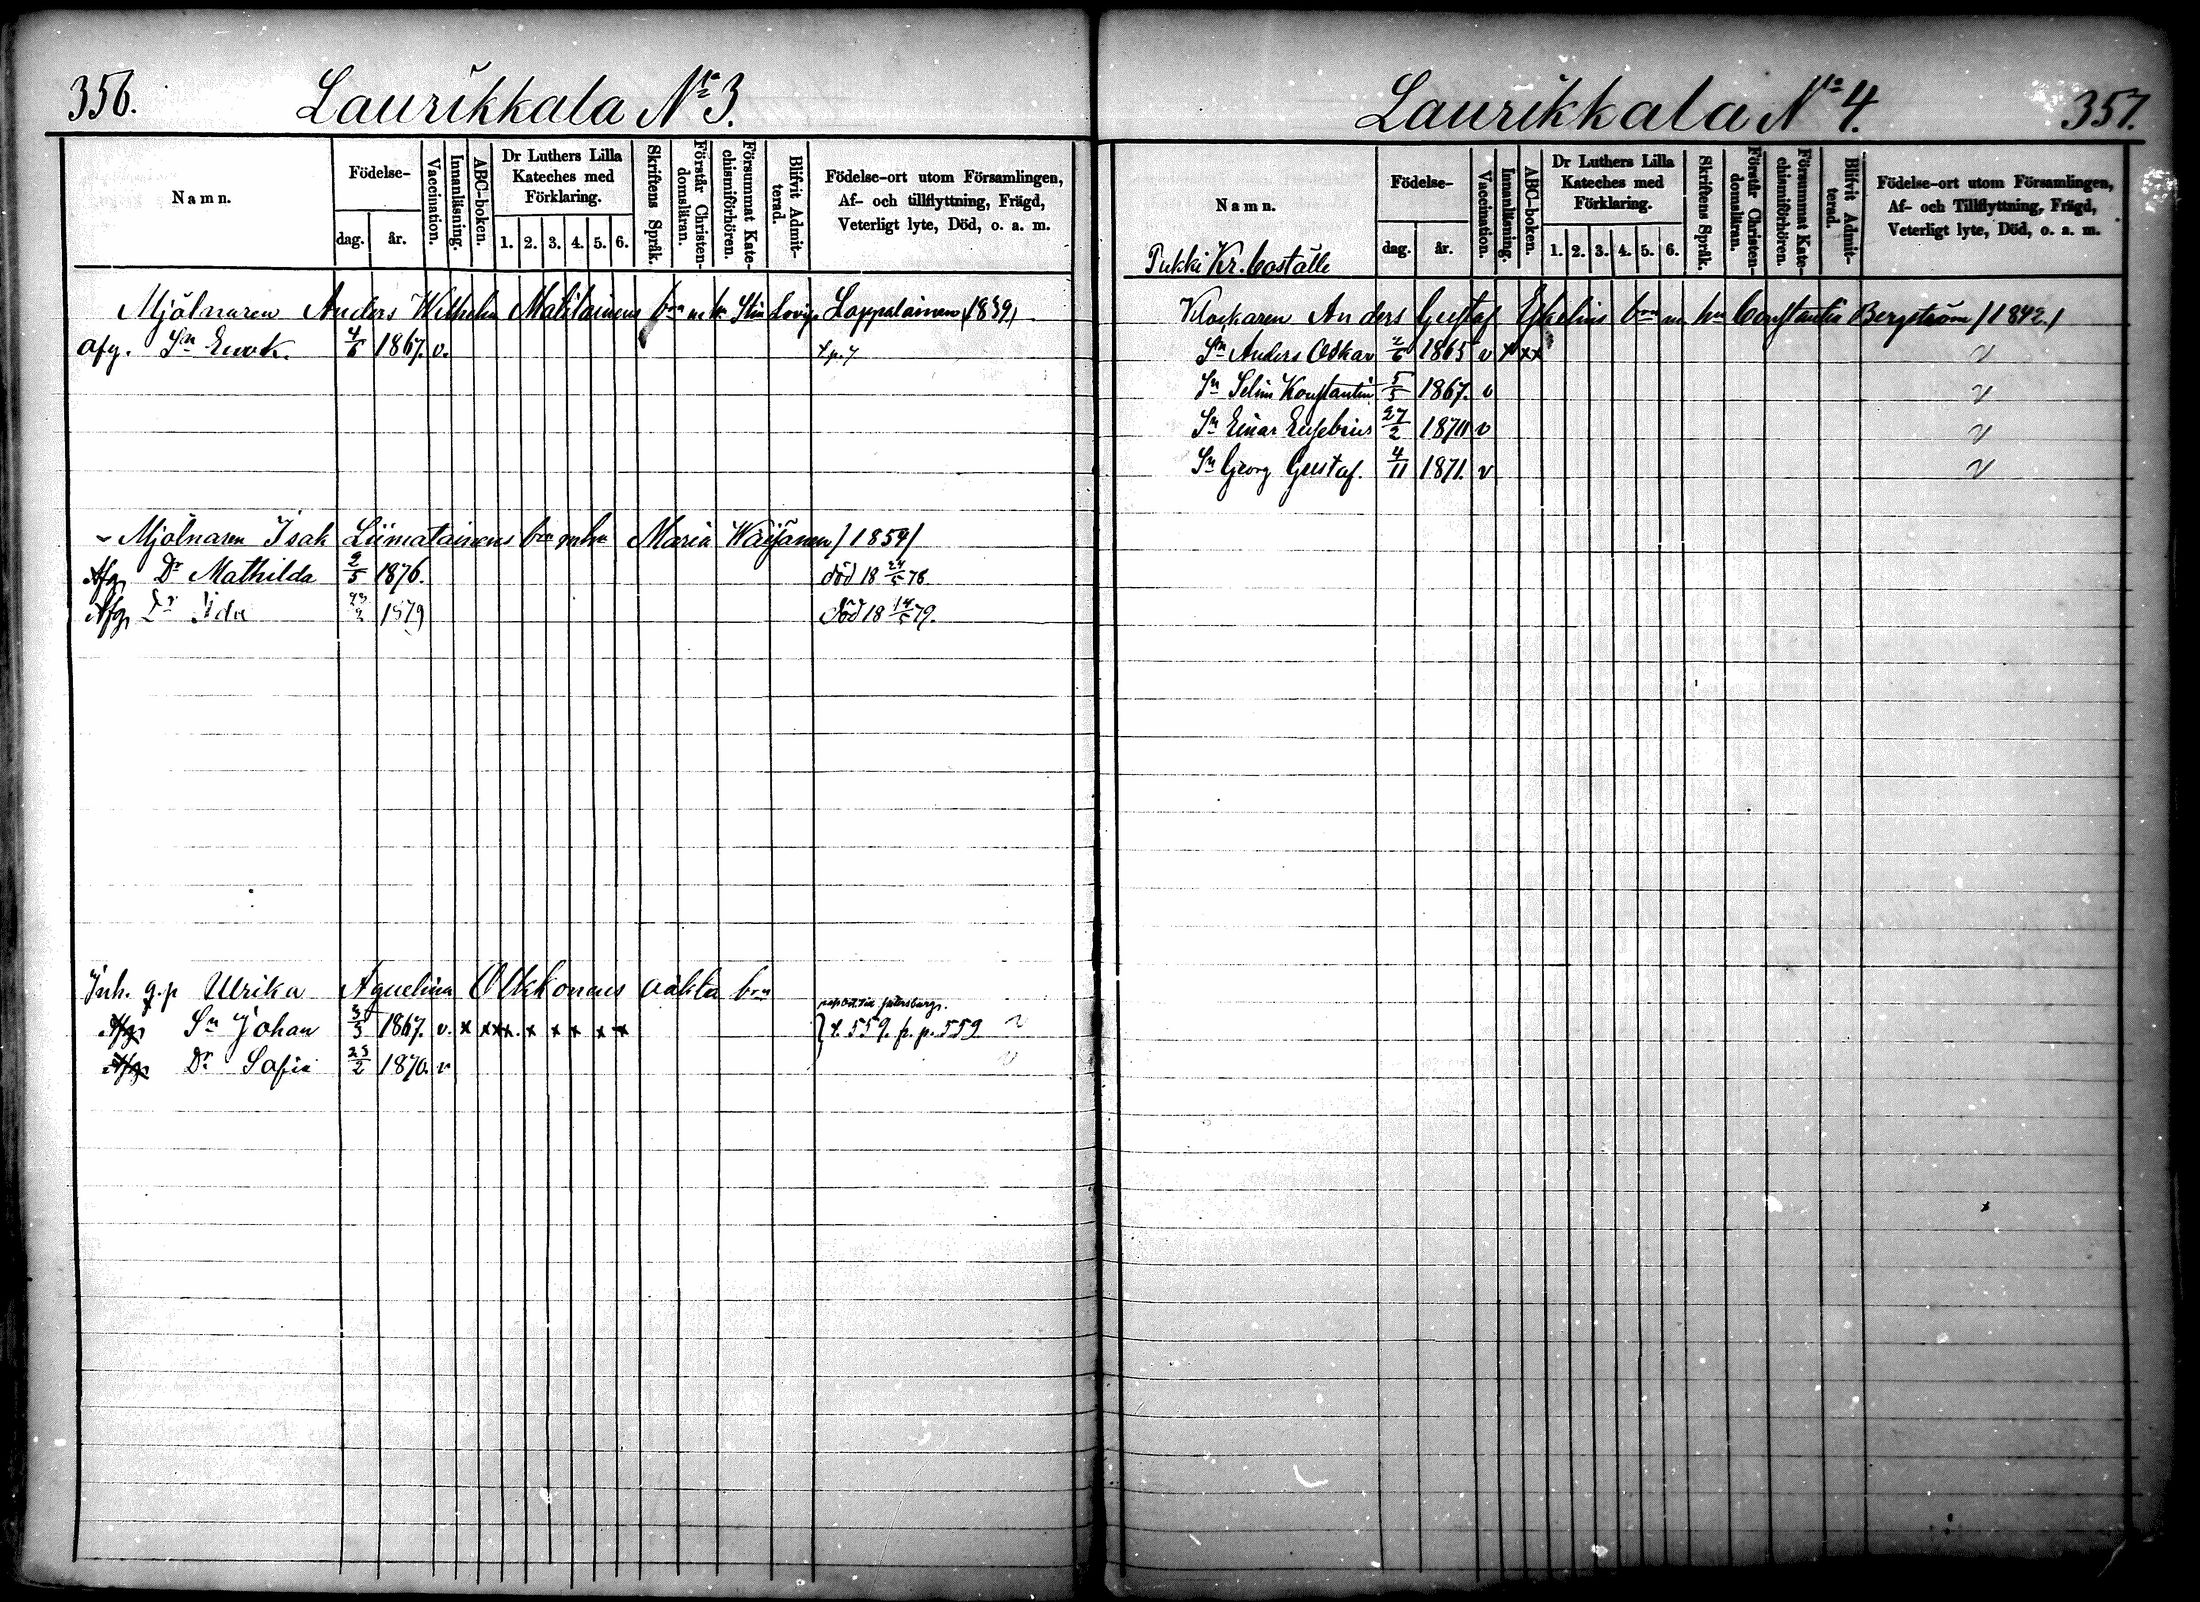 356.
Laurikkala No 3.
Namn.
Födelse-
dag.
år.
Vaccination.
Innanläsning.
ABC-boken.
Dr Luthers Lilla Kateches med Förklaring.
1. 2. 3. 4. 5. 6.
Skriftens Språk.
Förstår Christendomsläran.
Försummat Katechismiförhören.
Blifvit Admitterad.
Födelse-ort utom Församlingen,
Af- och tillflyttning, Frägd,
Veterligt lyte, Död, o. a. m.
Mjölnaren Anders Wilhelm Matilainens brn m hu Stin Lovisa Lappalainen (1839)
Afg. Sn Enok. 4/6 1867. v.
Mjölnaren Isak Liimatainens brn m hu Maria Wäisänen /1854/
Afg. Dr Mathilda 2/5 1876. död 18 24/5 78.
Afg. Dr Ida 1879 död 18 79.
Inh. g.p Ulrika Aquelina Olkkonens oäkta brn
Afg. Sn Johan 3/3 1867. v. x xxx. x x x x x t. 559. p. p. 559 v
Afg. Dr Sofia 23/2 1870. v v
357.
Laurikkala No 4.
Namn.
Födelse-
dag.
år.
Vaccination.
Innanläsning.
ABC-boken.
Dr Luthers Lilla Kateches med Förklaring.
1. 2. 3. 4. 5. 6.
Skriftens Språk.
Förstår Christendomsläran.
Försummat Katechismiförhören.
Blifvit Admitterad.
Födelse-ort utom Församlingen,
Af- och Tillflyttning, Frägd,
Veterligt lyte, Död, o. a. m.
Pukki Kr. Coställe
Klockaren Anders Gustaf Eskelins brn m hu Constantia Bergström /1842./
Sn Anders Oskar 2/6 1865 v x xx v
Sn Selim Konstantin 5/5 1867. v v
Sn Einar Eusebius 27/2 1870 v v
Sn Georg Gustaf. 4/11 1871. v v